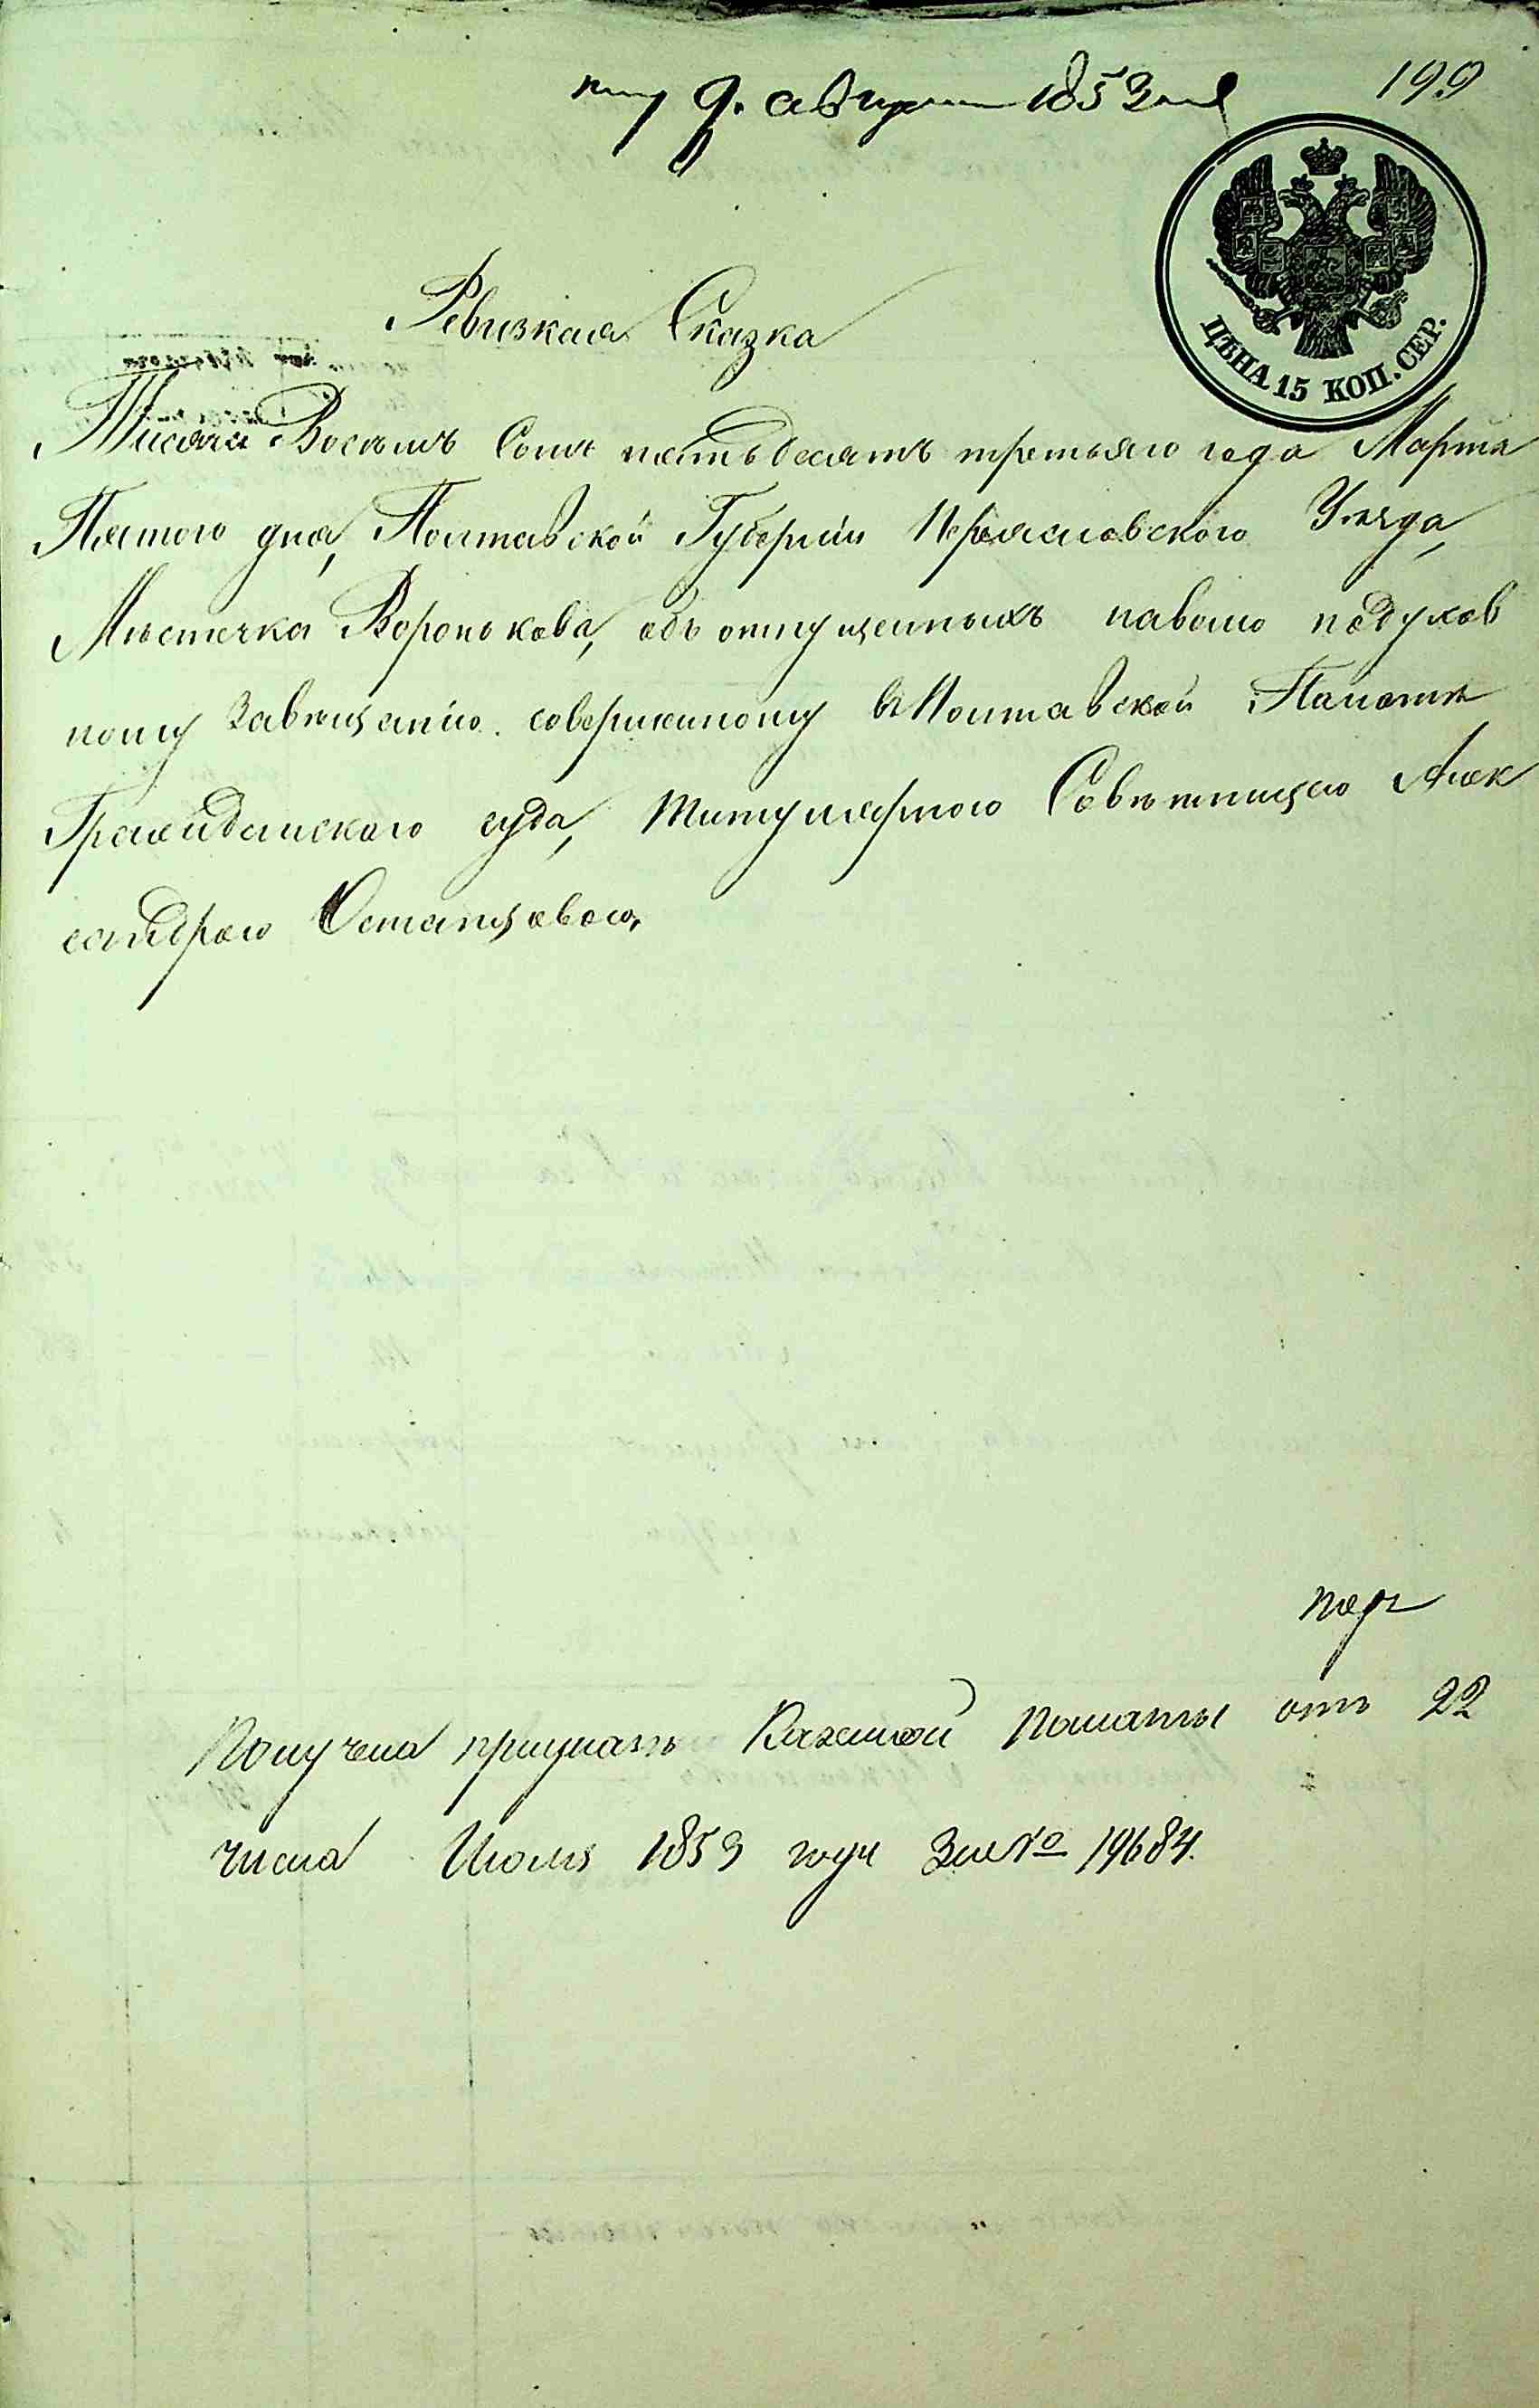 9. августа 1853 года
199
ЦѢНА 15 КОП. СЕР.
Ревизкая Сказка
Тисяча Восемъ Сотъ пятьдесятъ третьяго года Марта
Пятого дня, Полтавской Губерніи Переяславского Уѣзда,
Мѣстечка Воронькова, объ отпущенныхъ наволю подухов
ному завѣщанію совершенному в Полтавской Палатѣ
Гражданского суда, Титулярного Совѣтницею Алек
сандрою Остапцовою,
Получена приуказѣ Казенной Палаты отъ 22
числа Июля 1853 года за № 19684.